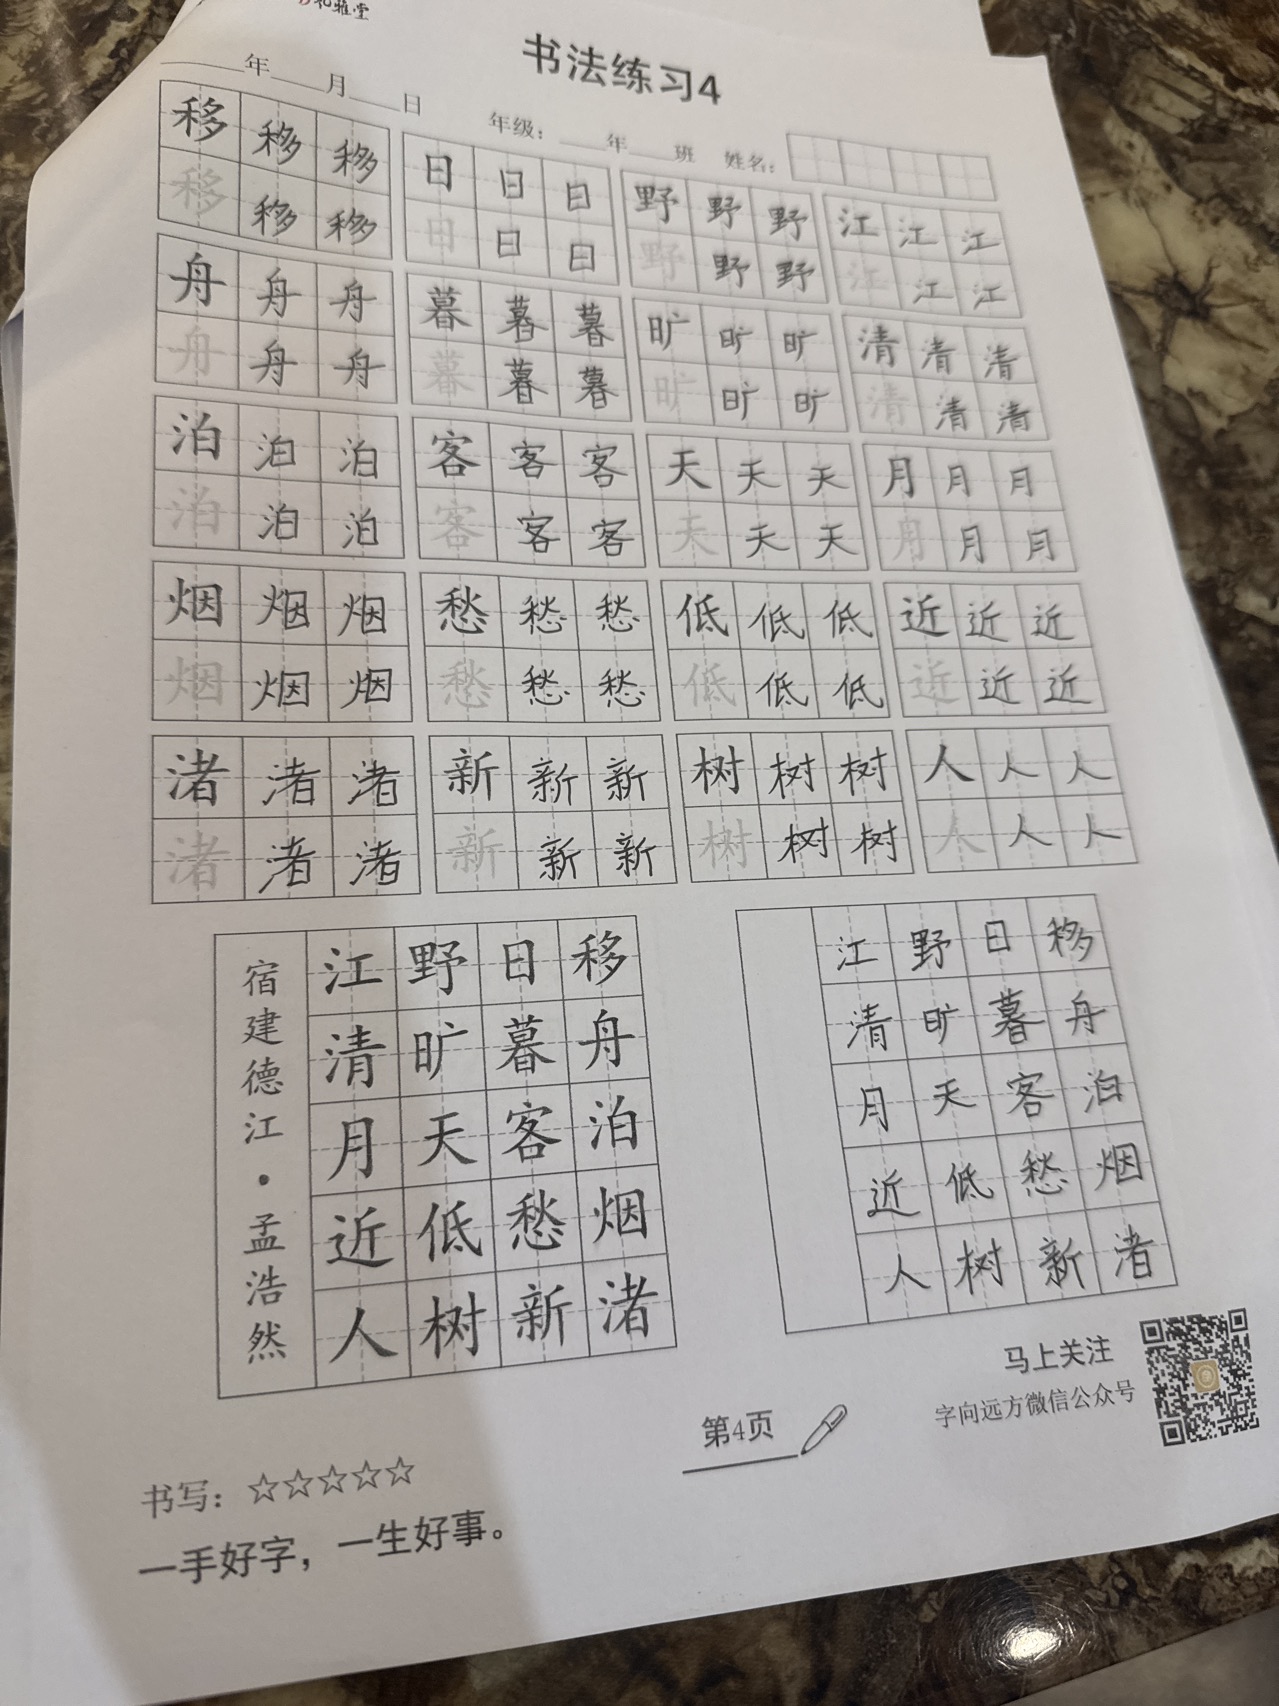 礼雅堂
书法练习4
____年____月____日 年级：____年____班 姓名：
移移移 日日日 野野野 江江江
移移移 日日日 野野野 江江江
舟舟舟 暮暮暮 旷旷旷 清清清
舟舟舟 暮暮暮 旷旷旷 清清清
泊泊泊 客客客 天天天 月月月
泊泊泊 客客客 天天天 月月月
烟烟烟 愁愁愁 低低低 近近近
烟烟烟 愁愁愁 低低低 近近近
渚渚渚 新新新 树树树 人人人
渚渚渚 新新新 树树树 人人人
移舟泊烟渚
日暮客愁新
野旷天低树
江清月近人
宿建德江·孟浩然
移舟泊烟渚
日暮客愁新
野旷天低树
江清月近人
马上关注
字向远方微信公众号
第4页
书写：☆☆☆☆☆
一手好字，一生好事。